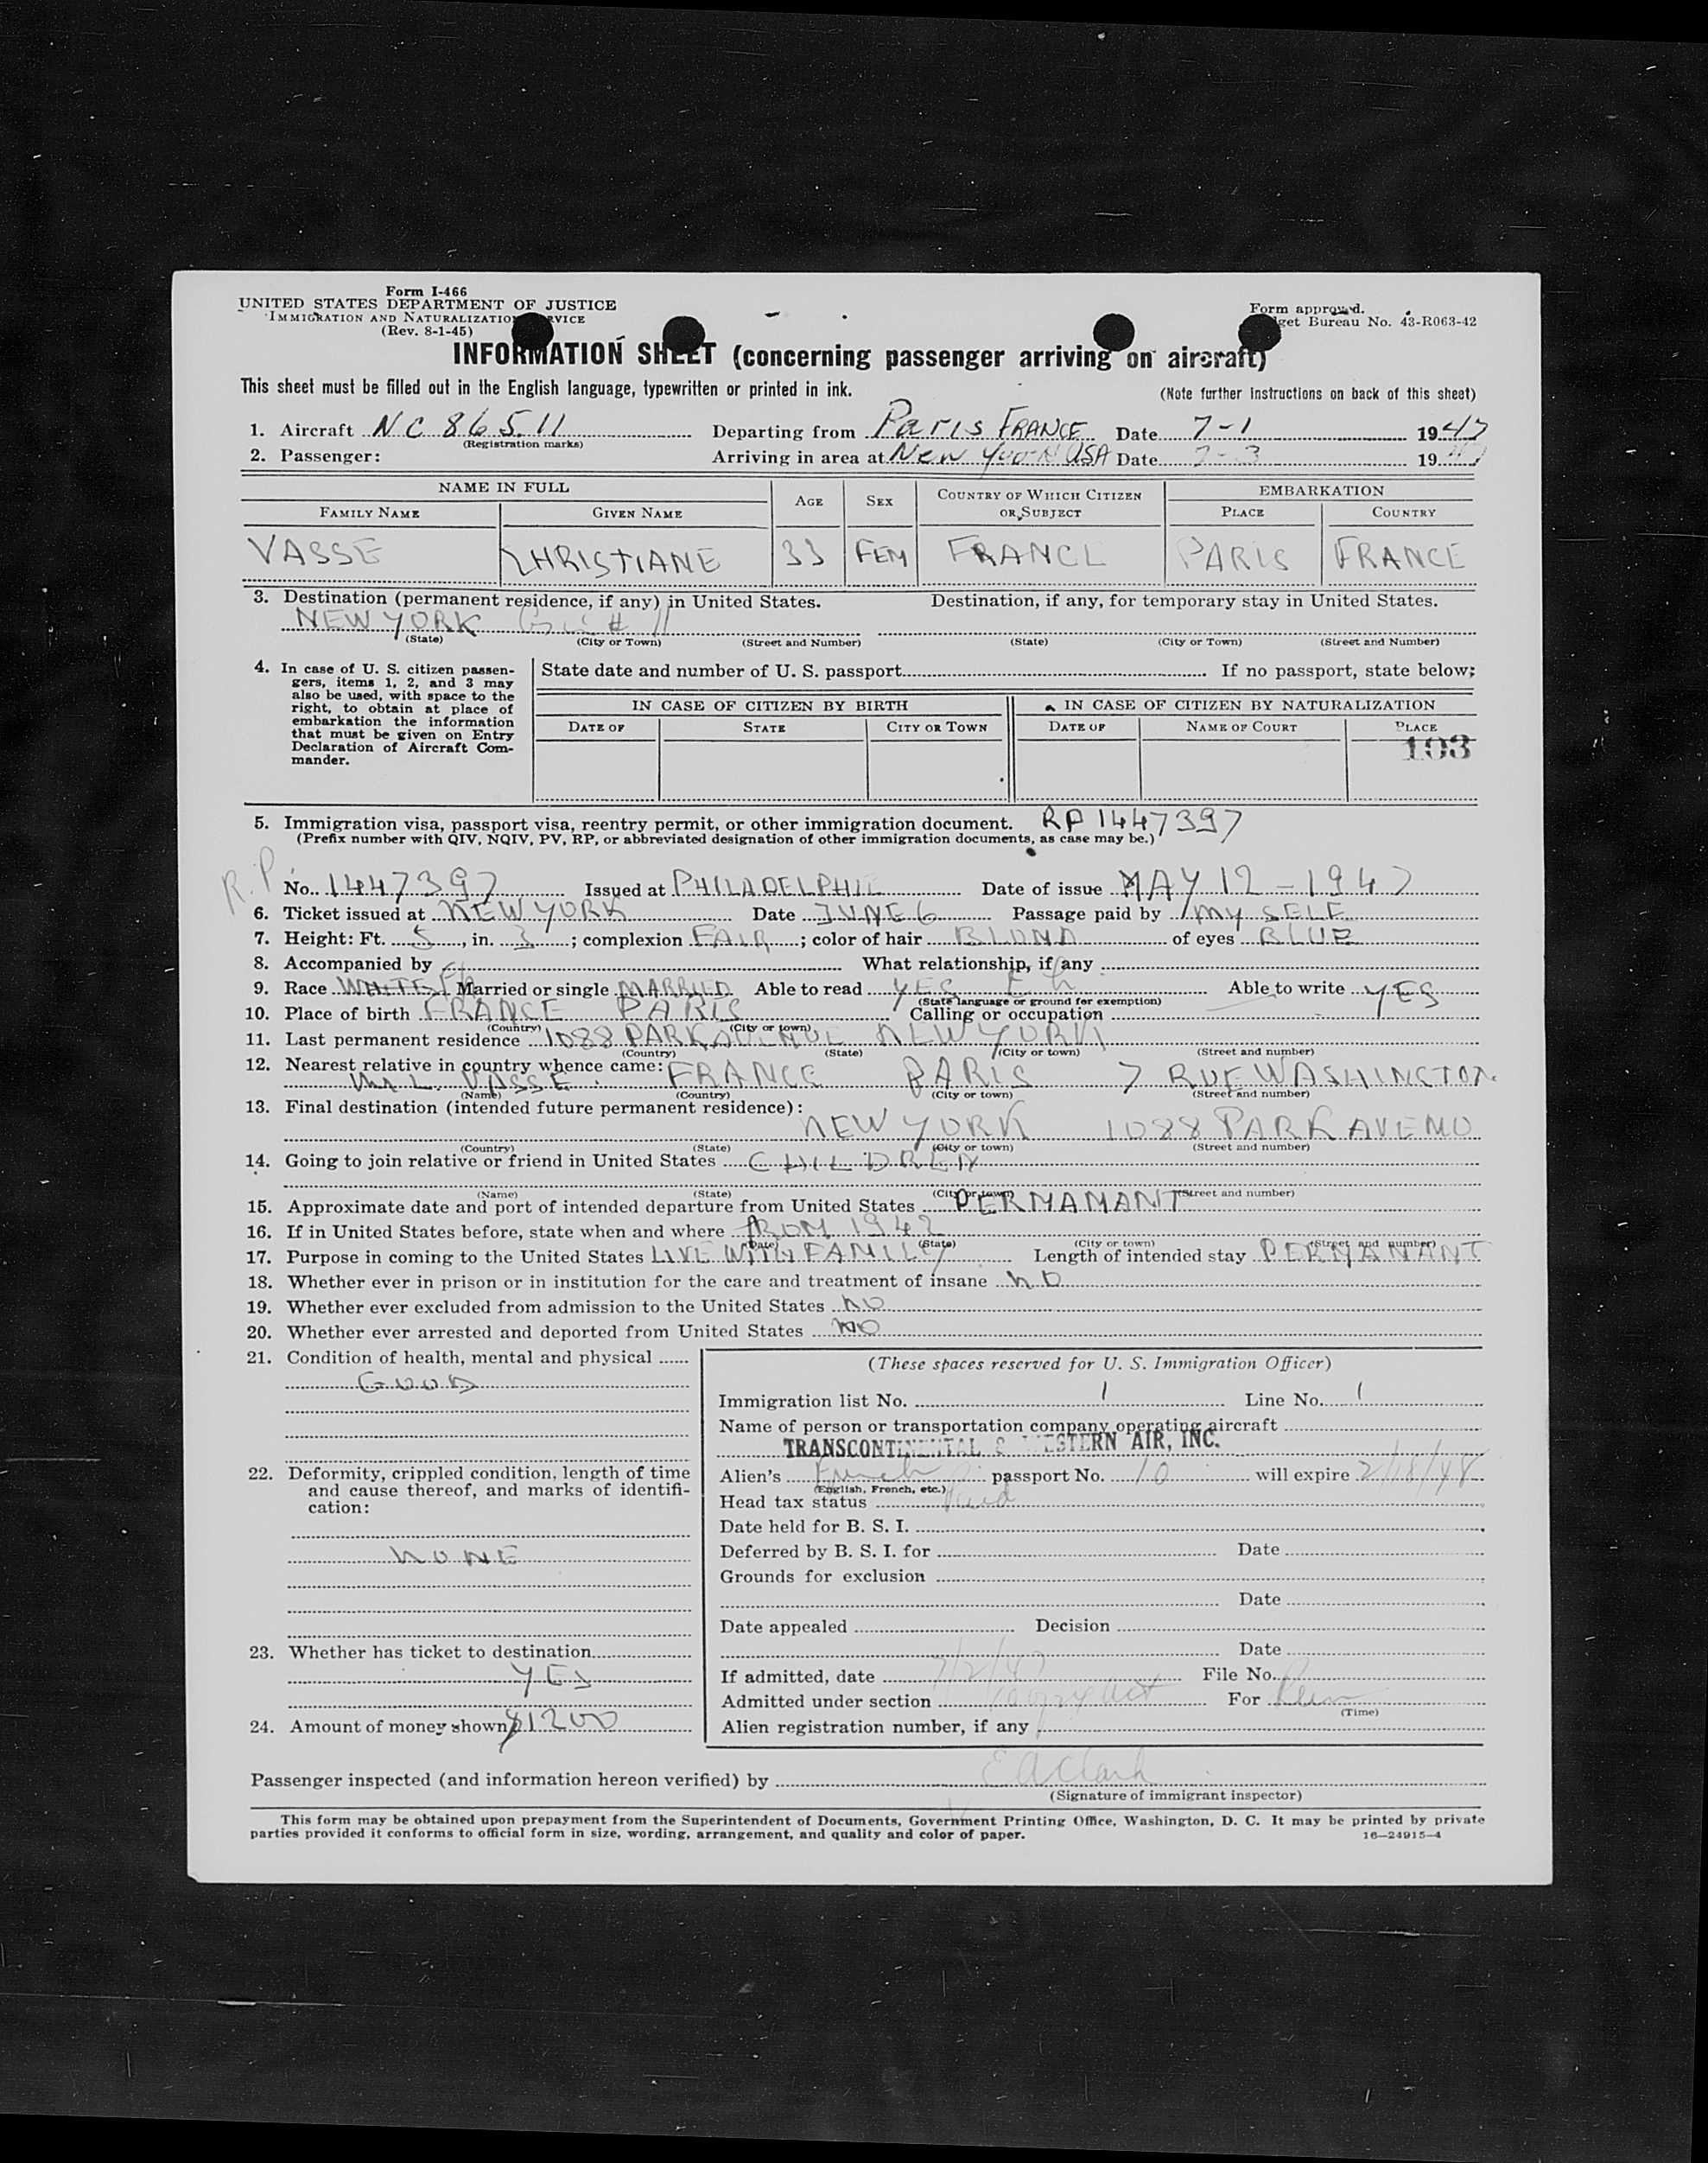 Form I-466
UNITED STATES DEPARTMENT OF JUSTICE
IMMIGRATION AND NATURALIZATION SERVICE
(Rev. 8-1-45)
Form approved.
Budget Bureau No. 43-R063-42
INFORMATION SHEET (concerning passenger arriving on aircraft)
This sheet must be filled out in the English language, typewritten or printed in ink. (Note further instructions on back of this sheet)
1. Aircraft NC 86511 Departing from Paris FRANCE Date 7-1 1947
(Registration marks)
2. Passenger: Arriving in area at New York USA Date 7-3 1947
NAME IN FULL AGE SEX COUNTRY OF WHICH CITIZEN OR SUBJECT EMBARKATION
FAMILY NAME GIVEN NAME PLACE COUNTRY
VASSE CHRISTIANE 33 FEM FRANCE PARIS FRANCE
3. Destination (permanent residence, if any) in United States. Destination, if any, for temporary stay in United States.
NEW YORK # 11
(State) (City or Town) (Street and Number) (State) (City or Town) (Street and Number)
4. In case of U. S. citizen passen-
gers, items 1, 2, and 3 may
also be used, with space to the
right, to obtain at place of
embarkation the information
that must be given on Entry
Declaration of Aircraft Com-
mander.
State date and number of U. S. passport If no passport, state below;
IN CASE OF CITIZEN BY BIRTH IN CASE OF CITIZEN BY NATURALIZATION
DATE OF STATE CITY OR TOWN DATE OF NAME OF COURT PLACE
103
5. Immigration visa, passport visa, reentry permit, or other immigration document. RP 1447397
(Prefix number with QIV, NQIV, PV, RP, or abbreviated designation of other immigration documents, as case may be.)
R.P. No. 1447397 Issued at PHILADELPHIE Date of issue MAY 12 - 1947
6. Ticket issued at NEW YORK Date JUNE 6 Passage paid by MY SELF
7. Height: Ft. 5, in. 3; complexion FAIR; color of hair BLOND of eyes BLUE
8. Accompanied by What relationship, if any
9. Race WHITE Fh Married or single MARRIED Able to read YES Fh Able to write YES
(State language or ground for exemption)
10. Place of birth FRANCE PARIS Calling or occupation
(Country) (City or town)
11. Last permanent residence 1088 PARK AVENUE NEW YORK
(Country) (State) (City or town) (Street and number)
12. Nearest relative in country whence came:
L. VASSE FRANCE PARIS 7 RUE WASHINGTON
(Name) (Country) (City or town) (Street and number)
13. Final destination (intended future permanent residence):
NEW YORK 1088 PARK AVENU
(Country) (State) (City or town) (Street and number)
14. Going to join relative or friend in United States CHILDREN
(Name) (State) (City or town) (Street and number)
15. Approximate date and port of intended departure from United States PERMAMANT
16. If in United States before, state when and where FROM 1942
(Date) (State) (City or town) (Street and number)
17. Purpose in coming to the United States LIVE WITH FAMILLY Length of intended stay PERMANANT
18. Whether ever in prison or in institution for the care and treatment of insane NO
19. Whether ever excluded from admission to the United States NO
20. Whether ever arrested and deported from United States NO
21. Condition of health, mental and physical
GOOD
22. Deformity, crippled condition, length of time
and cause thereof, and marks of identifi-
cation:
NONE
23. Whether has ticket to destination
YES
24. Amount of money shown $1200
(These spaces reserved for U. S. Immigration Officer)
Immigration list No. 1 Line No. 1
Name of person or transportation company operating aircraft
TRANSCONTINENTAL & WESTERN AIR, INC.
Alien's French passport No. 10 will expire 2/18/48
(English, French, etc.)
Head tax status Paid
Date held for B. S. I.
Deferred by B. S. I. for Date
Grounds for exclusion
Date
Date appealed Decision
Date
If admitted, date 7/2/47 File No.
Admitted under section Act For Perm
(Time)
Alien registration number, if any
Passenger inspected (and information hereon verified) by E A Clark
(Signature of immigrant inspector)
This form may be obtained upon prepayment from the Superintendent of Documents, Government Printing Office, Washington, D. C. It may be printed by private
parties provided it conforms to official form in size, wording, arrangement, and quality and color of paper. 16—24915-4